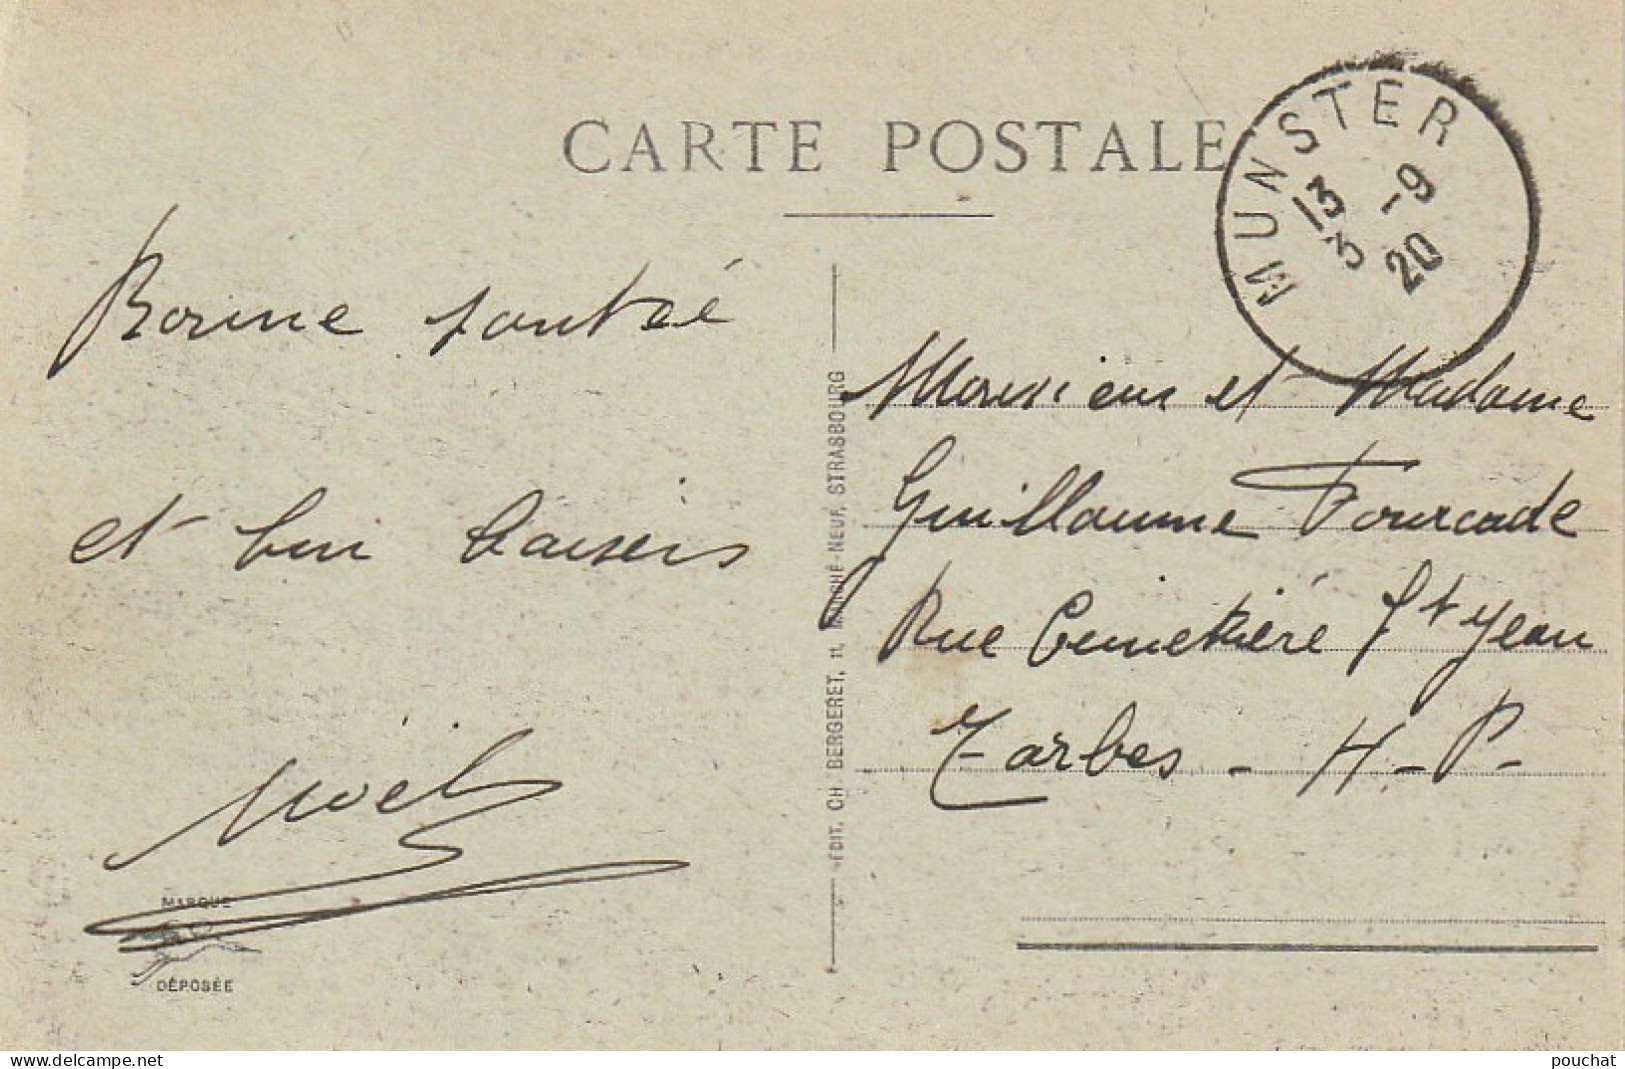 CARTE POSTALE
MUNSTER
13 -9
3 20
Bonne santé
et bon baisers
Noël
MARQUE
DÉPOSÉE
ÉDIT. CH. BERGERET, 11, MARCHÉ-NEUF, STRASBOURG
Monsieur et Madame
Guillaume Fourcade
Rue Cemetiéré St Jean
Tarbes - H - P -
www.delcampe.net
pouchat